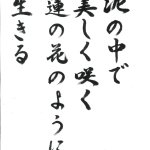 泥の中で
美しく咲く
蓮の花のように
生きる